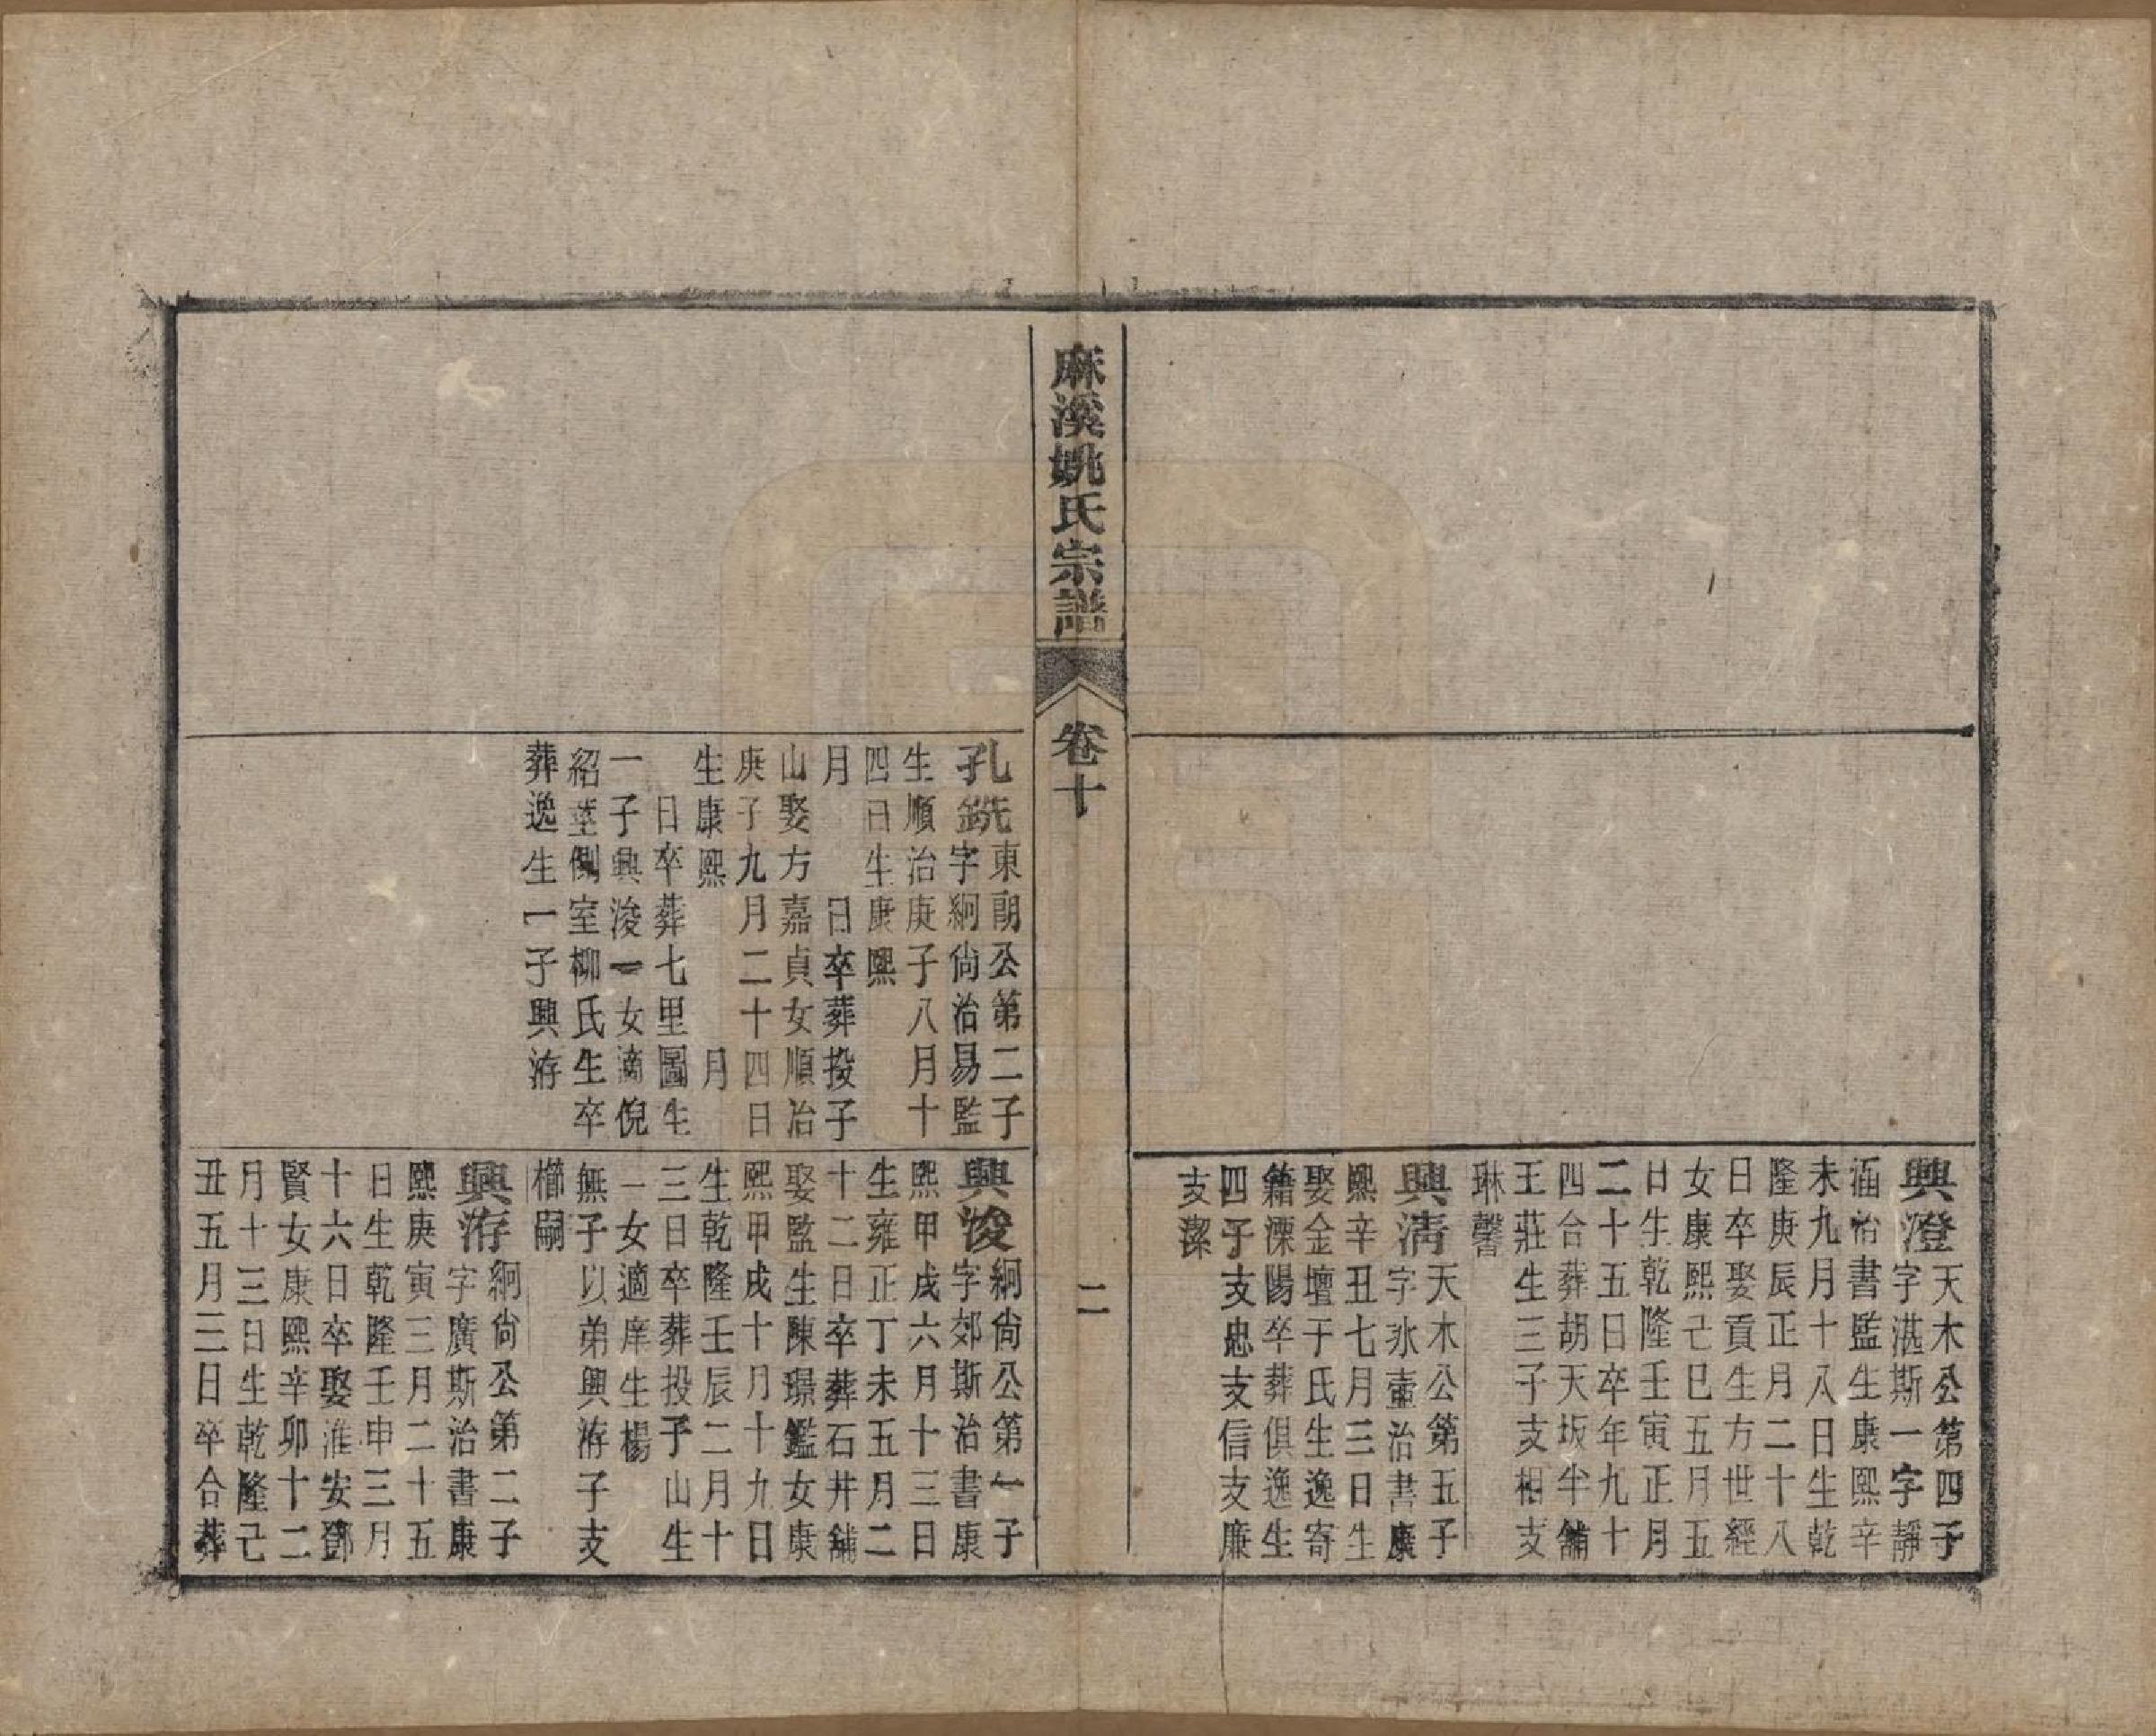 興澄天木公第四子
字湛斯一字靜
涵治書監生康熙辛
未九月十八日生乾
隆庚辰正月二十八
日卒娶貢生方世經
女康熙己巳五月五
日生乾隆壬寅正月
二十五日卒年九十
四合葬胡天坂半舖
王莊生三子支相支
琳支馨
興清天木公第五子
字氷壷治書康
熙辛丑七月三日生
娶金壇于氏生逸寄
籍溧陽卒葬俱逸生
四子支忠支信支廉
支潔
麻溪姚氏宗譜
卷十
二
孔銑東朗公第二子
字絅尙治易監
生順治庚子八月十
四日生康熙
月 日卒葬投子
山娶方嘉貞女順治
庚子九月二十四日
生康熙 月
日卒葬七里圖生
一子興浚一女適倪
紹 側室柳氏生卒
葬逸生一子興洊
興浚絅尙公第一子
字郊斯治書康
熙甲戌六月十三日
生雍正丁未五月二
十二日卒葬石井舖
娶監生陳璟鑑女康
熙甲戌十月十九日
生乾隆壬辰二月十
三日卒葬投子山生
一女適庠生楊
無子以弟興洊子支
櫛嗣
興洊絅尙公第二子
字廣斯治書康
熙庚寅三月二十五
日生乾隆壬申三月
十六日卒娶淮安鄧
賢女康熙辛卯十二
月十三日生乾隆己
丑五月三日卒合葬